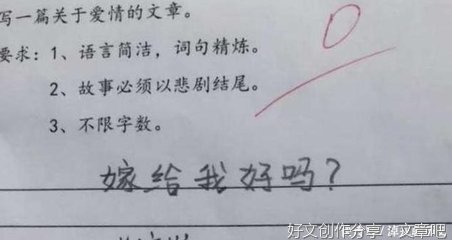 写一篇关于爱情的文章。
要求：1、语言简洁，词句精炼。
2、故事必须以悲剧结尾。
3、不限字数。
0
嫁给我好吗？
好文创作分享